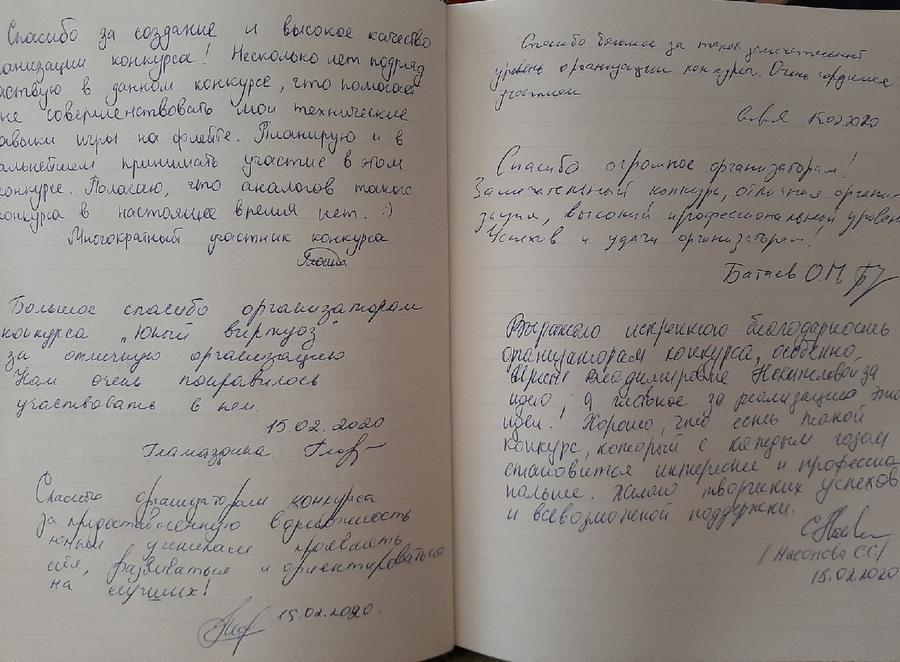 Спасибо за создание и высокое качество
анизации конкурса! Несколько лет подряд
аствую в данном конкурсе, что помогает
не совершенствовать мои технические
авыки игры на флейте. Планирую и в
альнейшем принимать участие в этом
конкурсе. Полагаю, что аналогов такого
конкурса в настоящее время нет. :)
Многократный участник конкурса
Большое спасибо организаторам
конкурса "Юный виртуоз"
за отличную организацию
Нам очень понравилось
участвовать в нем.
15.02.2020
Спасибо организаторам конкурса
за предоставленную возможность
юным ученикам проявить
себя, развиваться и ориентироваться
на лучших!
15.02.2020.
Спасибо большое за такой замечательный
уровень организации конкурса. Очень гордимся
участием
15.02.2020
Спасибо огромное организаторам!
Замечательный конкурс, отличная органи-
зация, высокий профессиональный уровень
Успехов и удачи организаторам!
Батаев О.М.
Выражаю искреннюю благодарность
организаторам конкурса, особенно,
Владимировне за
идею, а главное за реализацию этой
идеи! Хорошо, что есть такой
конкурс, который с каждым годом
становится интереснее и профессио-
нальнее. Желаю творческих успехов
и всевозможной поддержки.
/Насонова СС/
15.02.2020